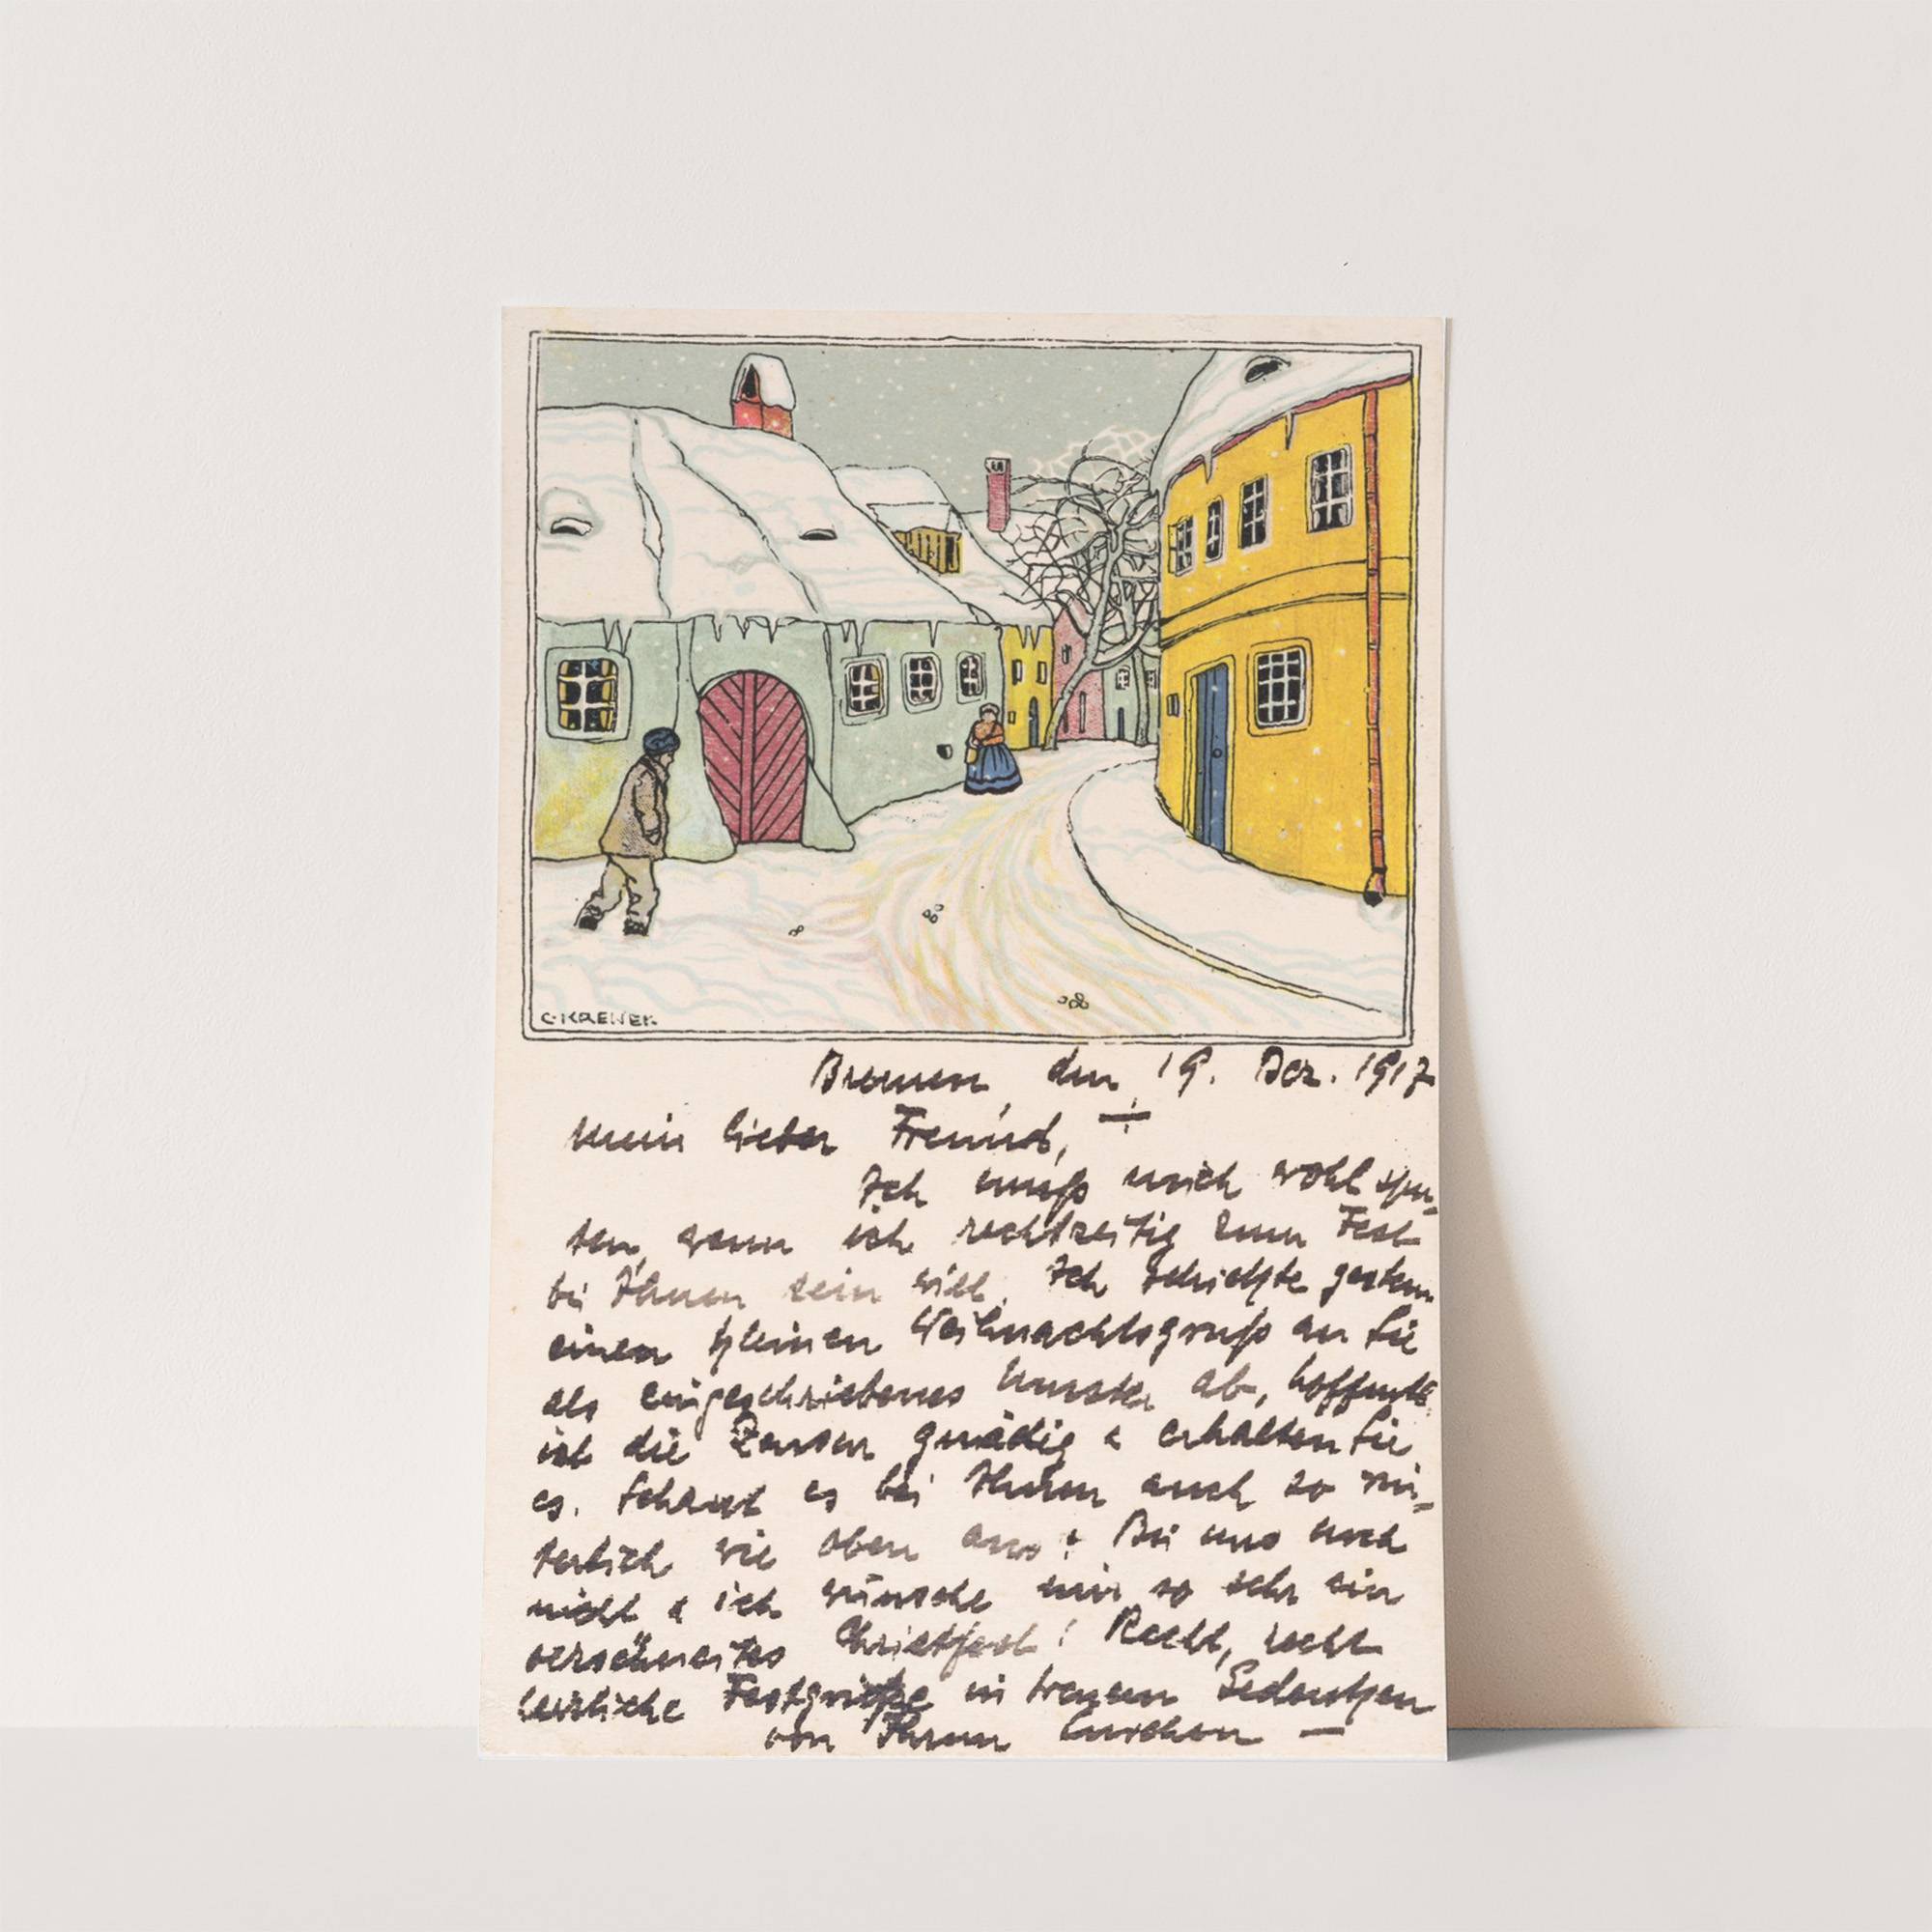 C·KRENEK·
Bremen, den 19. Dez. 1917
Mein lieber Freund,
Ich muß mich wohl spu-
ten, wenn ich rechtzeitig zum Fest
bei Ihnen sein will. Ich schickte gestern
einen kleinen Weihnachtsgruß an Sie
als eingeschriebenes Muster ab, hoffentl.
ist die Zensur gnädig & erhalten Sie
es. Schaut es bei Ihnen auch so win-
terlich wie oben aus? Bei uns noch
nicht & ich wünsche mir so sehr ein
verschneites Christfest! Recht, recht
herzliche Festgrüße in treuem Gedenken
von Ihrem